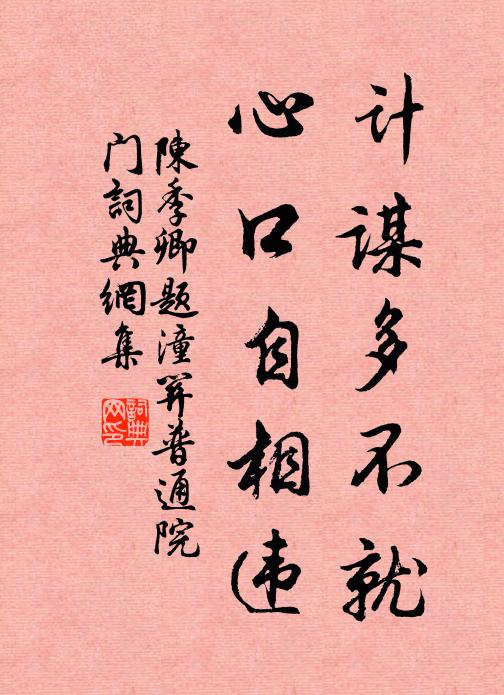 计谋多不就
心口自相违
陳季卿题潼関普通院
门詞典網集
詞典网印